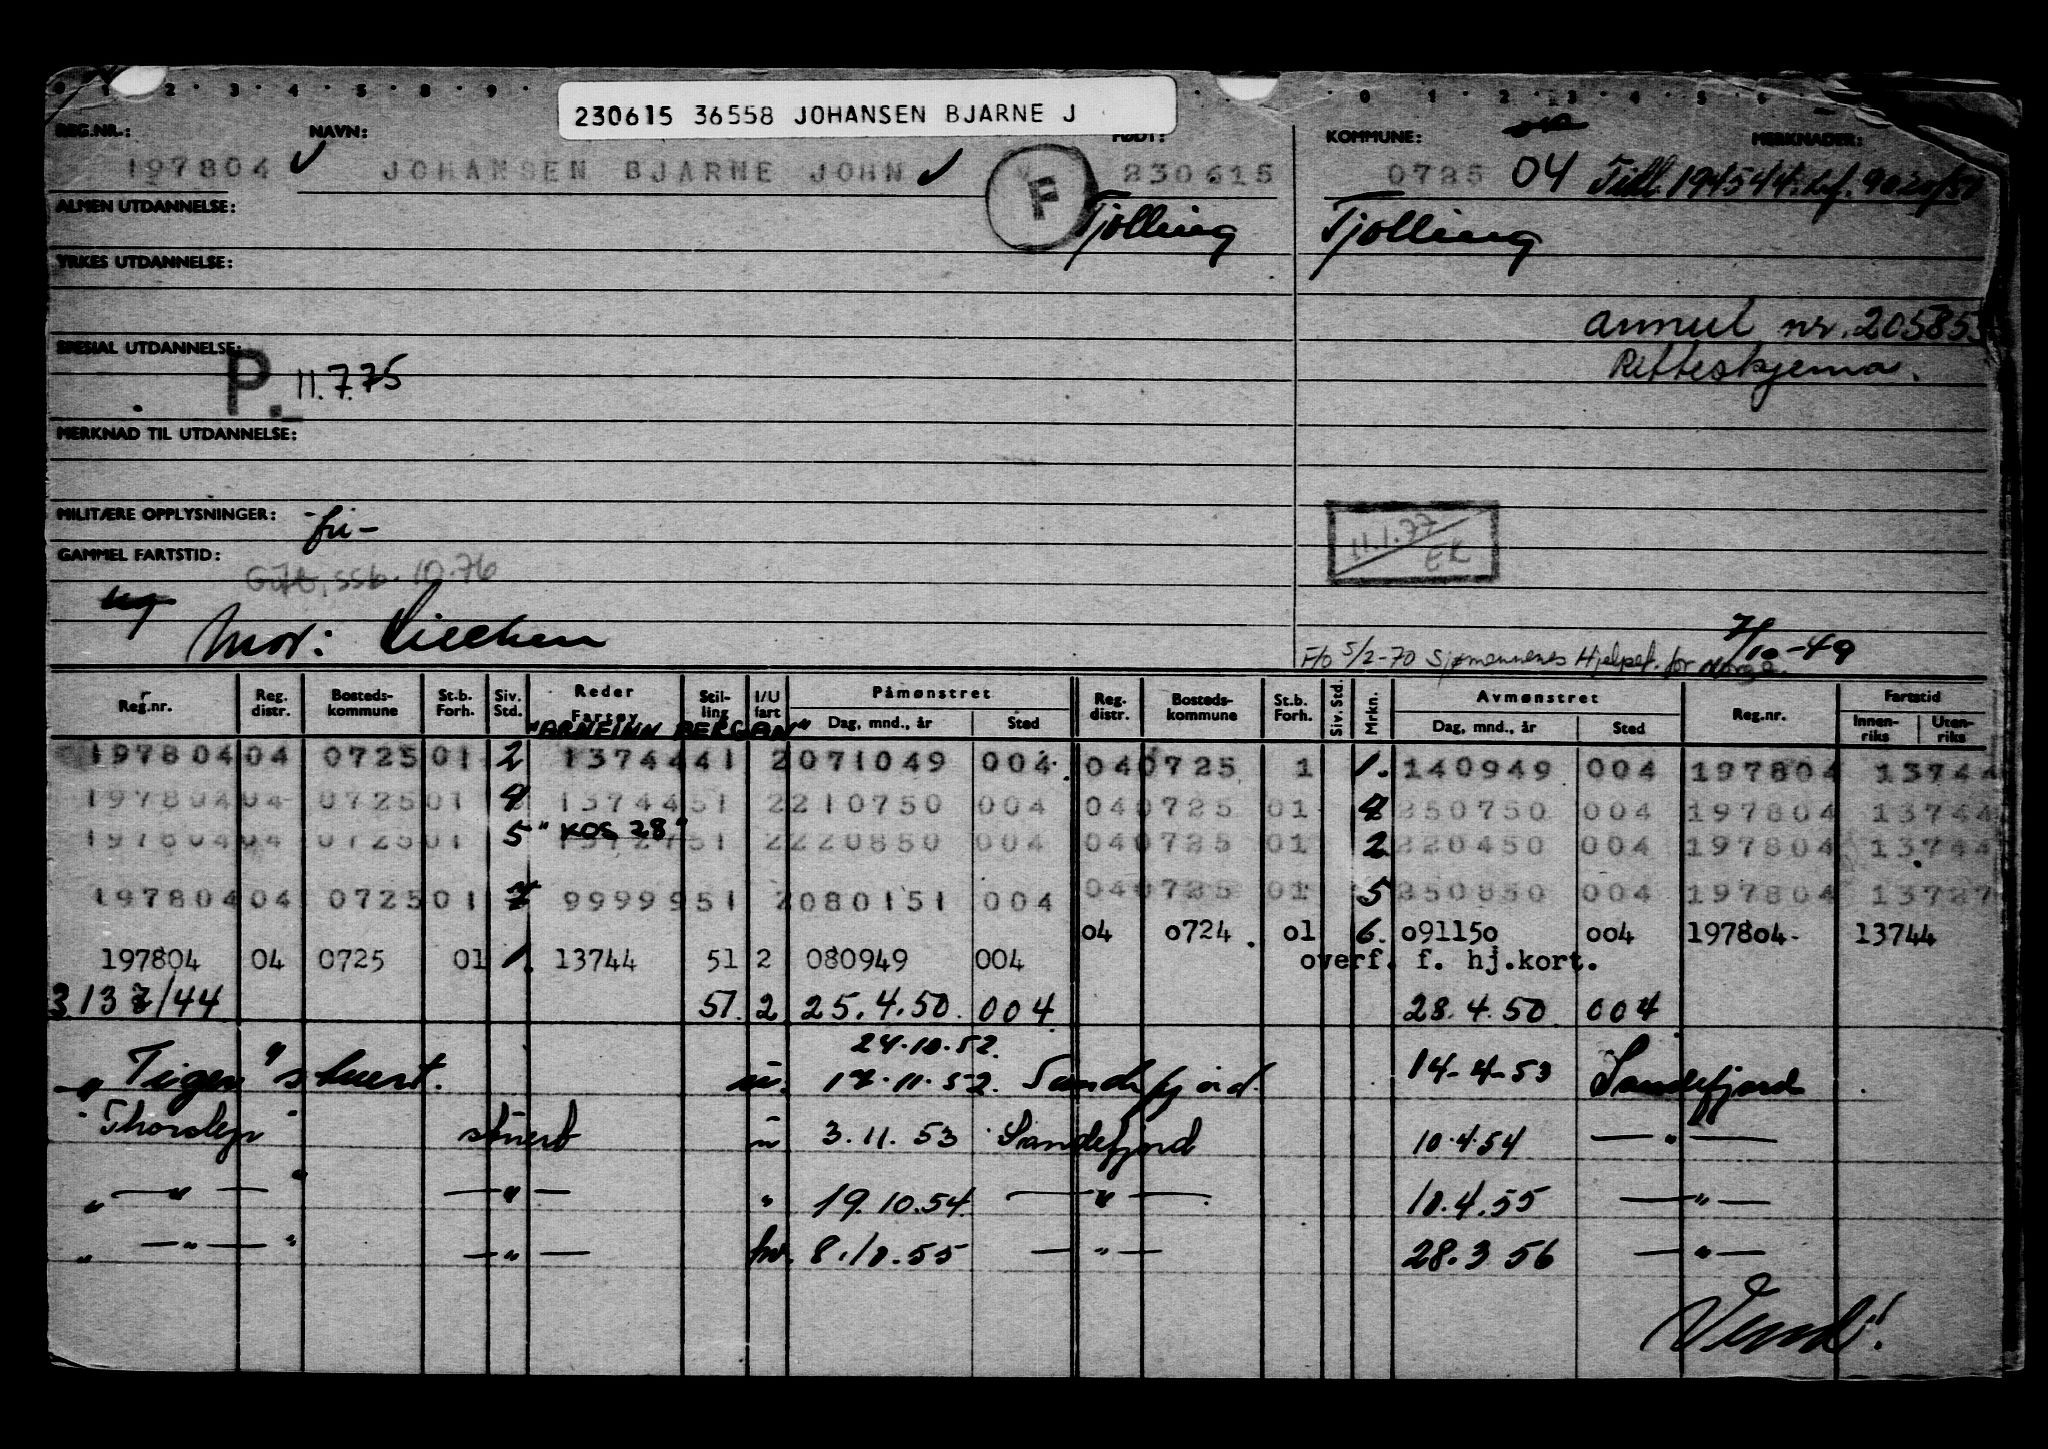 0 1 2 3 4 5 8 9 0 1 2 3 4 5 6
230615 36558 JOHANSEN BJARNE J
REG.NR.: NAVN: FØDT: KOMMUNE: MERKNADER:
197804 JOHANSEN BJARNE JOHN F 230615 0725 04
ALMEN UTDANNELSE: Tjølling Tjølling
YRKES UTDANNELSE:
annul nr. 205853
SPESIAL UTDANNELSE: Retteskjema.
P. 11.7.75
MERKNAD TIL UTDANNELSE:
MILITÆRE OPPLYSNINGER: -fri-
11.1.77
EK
GAMMEL FARTSTID:
Gift, ssb. 10.76
Mor:
7/10-49
F/o 5/2-70 Sjømennenes Hjelpef. for Norge.
Reg.nr. Reg. distr. Bosteds-kommune St.b. Forh. Siv. Std. Reder Fartøy Stil-ling I/U fart Påmønstret Dag, mnd., år Sted Reg. distr. Bosteds-kommune St.b. Forh. Siv. Std. Mrkn. Avmønstret Dag, mnd., år Sted Reg.nr. Fartstid Innen-riks Uten-riks
"ARNFINN BERGAN"
197804 04 0725 01 2 13744 41 2 071049 004 04 0725 1 1. 140949 004 197804 13744
197804 04 0725 01 4 13744 51 2 210750 004 04 0725 01 4 250750 004 197804 13744
"KOS 28"
197804 04 0725 01 5 13727 51 2 220850 004 04 0725 01 2 220450 004 197804 13744
197804 04 0725 01 7 99999 51 2 080151 004 04 0725 01 5 250850 004 197804 13727
04 0724 01 6. 091150 004 197804 13744
197804 04 0725 01 1. 13744 51 2 080949 004 overf. f. hj.kort.
137/44 51. 2 25.4.50. 004 28.4.50 004
24.10.52.
"Tiger" stuert. u. 17.11.52. Sandefjord. 14-4-53 Sandefjord
"Thorsløv" stuert u 3.11.53 Sandefjord 10.4.54 — " —
" — " — " — " — " 19.10.54 — " — 10.4.55 — " —
" — " — " — " — hv. 8.10.55 — " — 28.3 56 — " —
Vend!